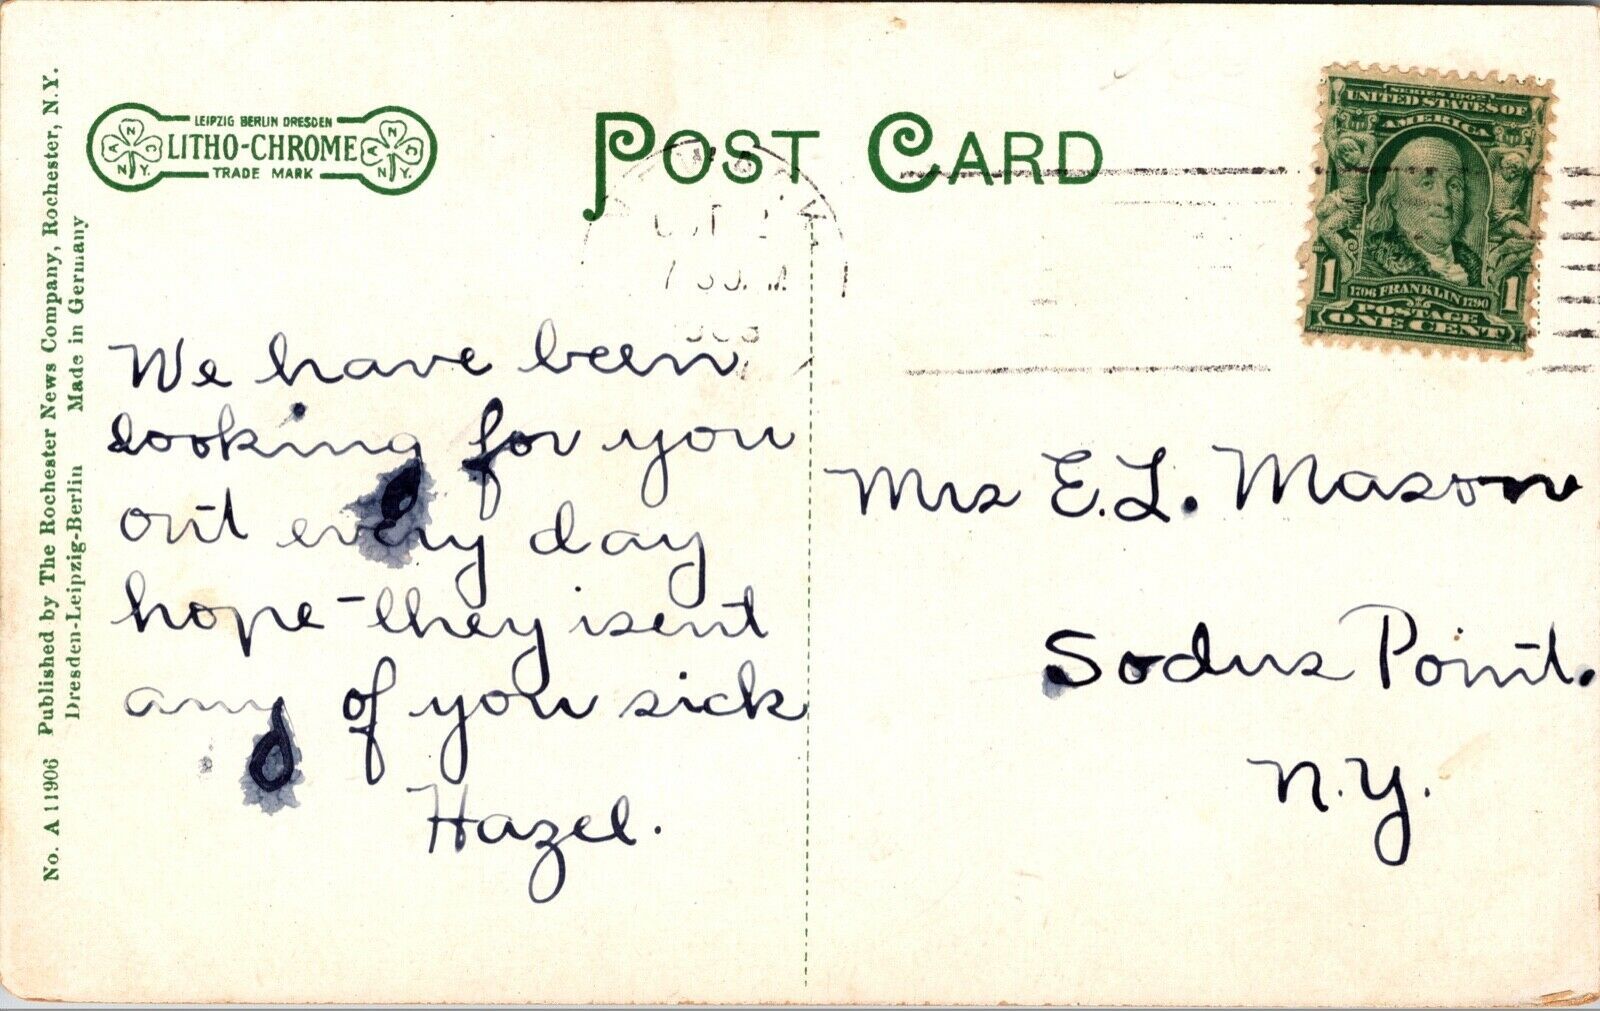 No. A 11906 Published by The Rochester News Company, Rochester, N.Y.
Dresden-Leipzig-Berlin Made in Germany
LEIPZIG BERLIN DRESDEN
LITHO-CHROME
TRADE MARK
A N C
N.Y.
A N C
N.Y.
POST CARD
SERIES 1902
UNITED STATES OF
AMERICA
1706 FRANKLIN 1790
1 1
POSTAGE
ONE CENT
We have been
looking for you
out every day
hope they isent
any of you sick
Hazel.
Mrs E.L. Mason
Sodus Point.
N.Y.